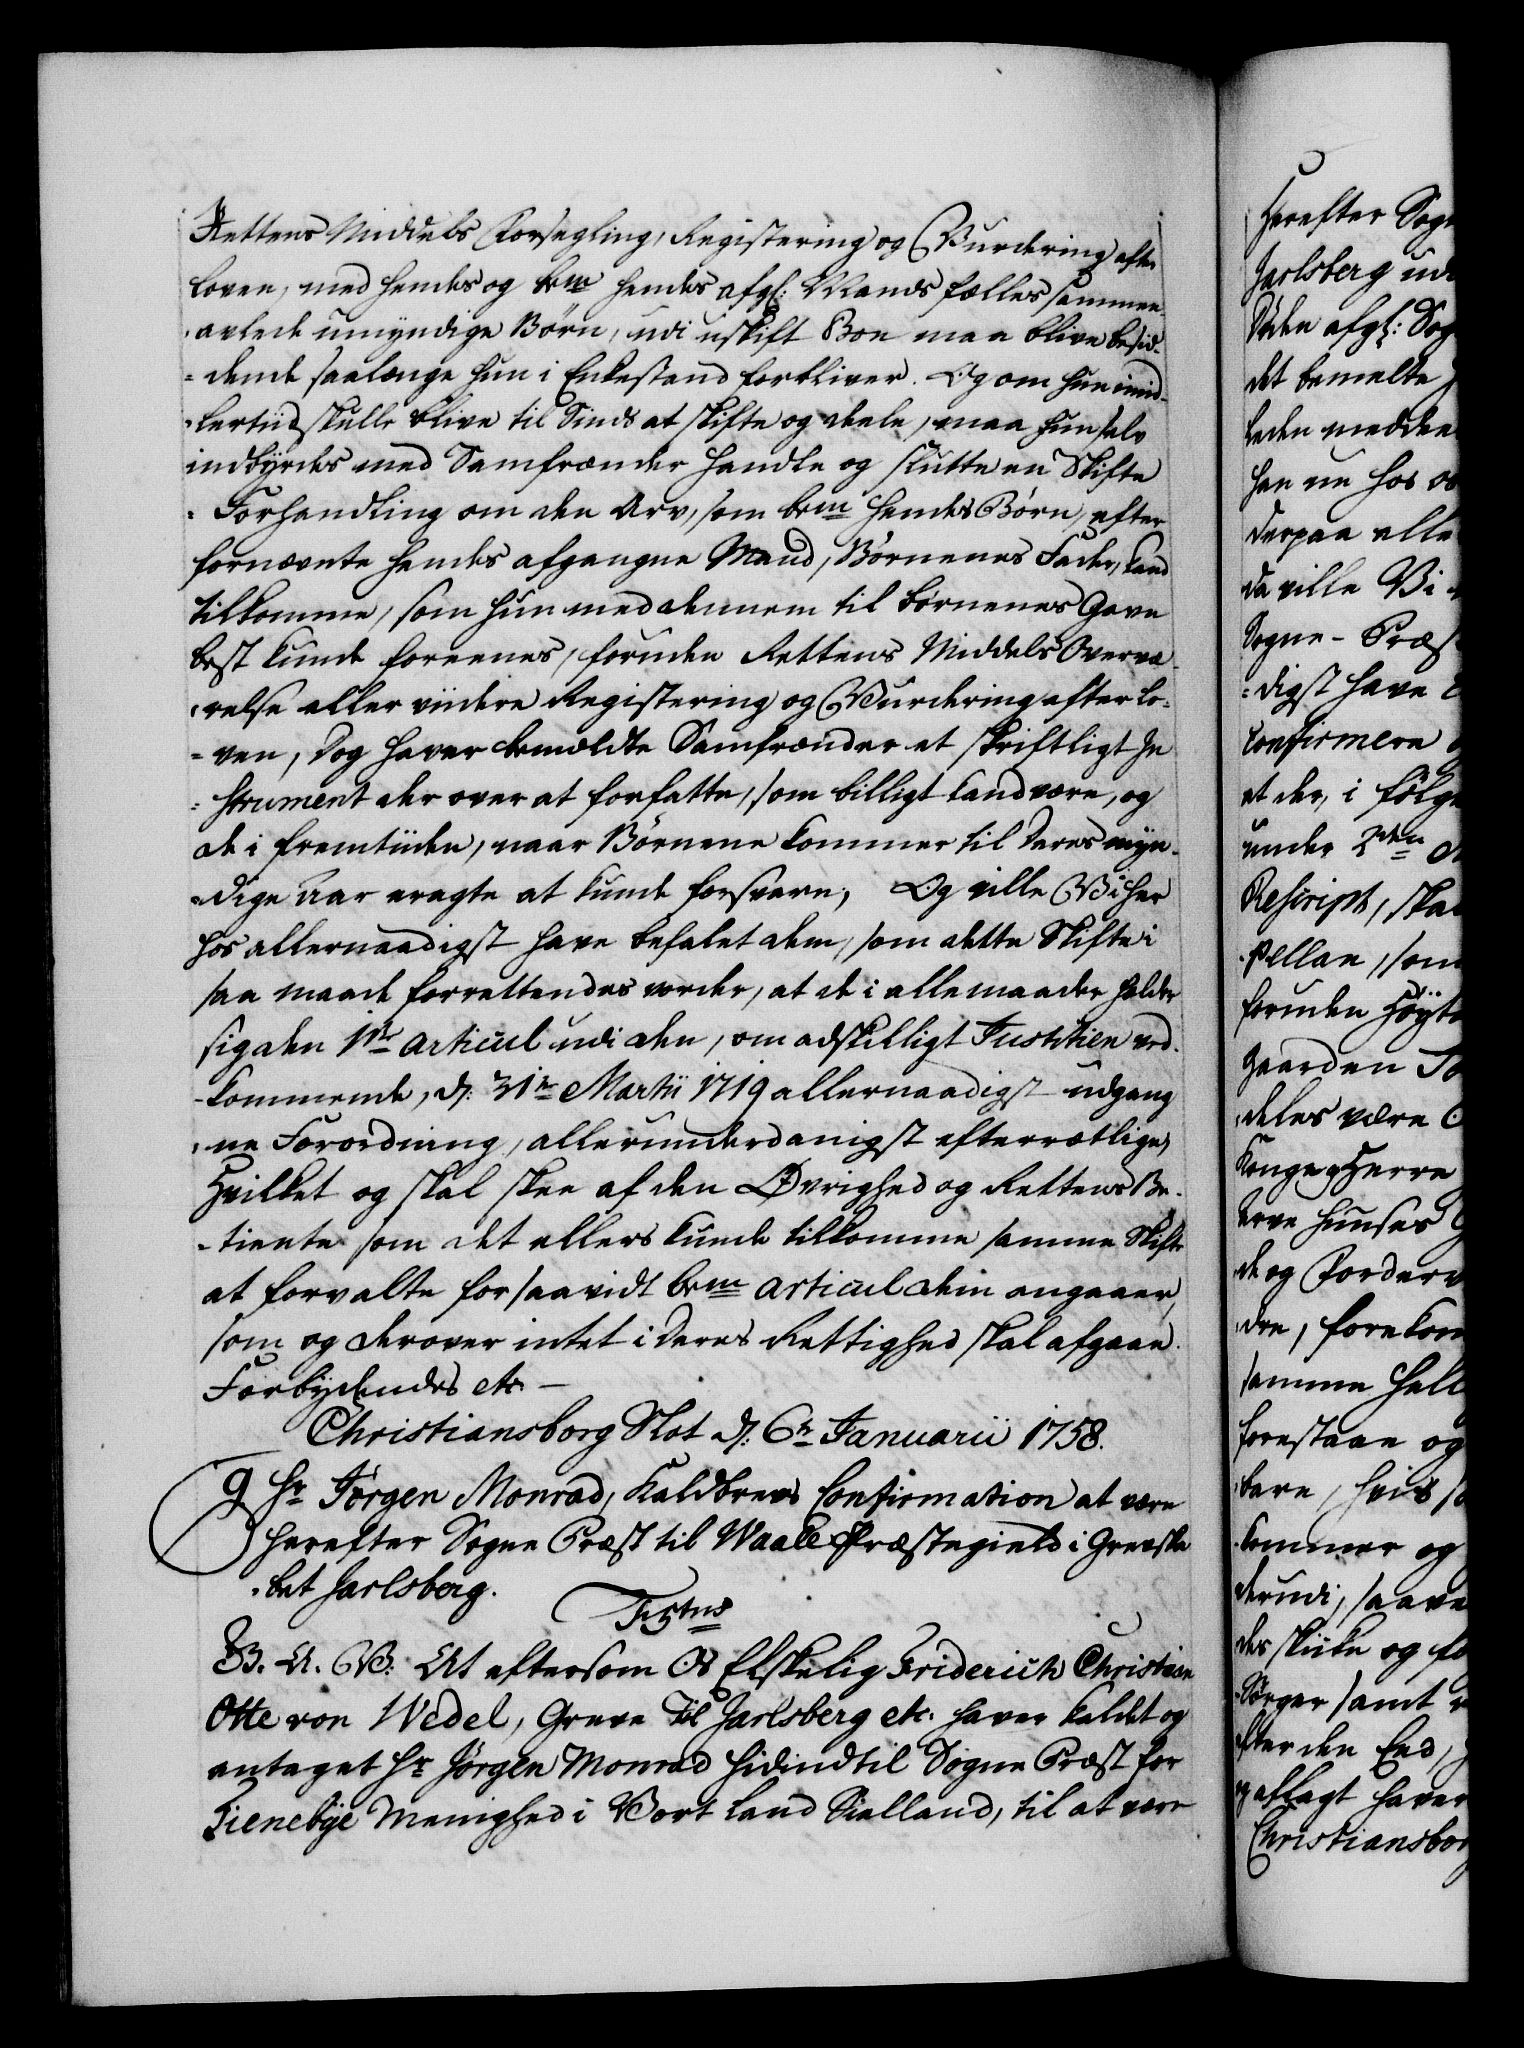 Rettens Middels Forsegling, Registering og Vurdering efter
Loven, med hendes og bem.te hendes afg: Mands fælles sammen-
avlede umyndige Børn, udi uskift Boe maa blive besid-
-dende saalænge hun i Enkestand forbliver. Og om hun imid-
-lertiid skulle blive til Sinds at skifte og dele, maa hun selv
indbyrdes med Samfrænder handle og slutte en Skifte
-Forhandling om den Arv, som bem.te hendes Børn, efter
fornævnte hendes afgangne Mand, Børnenes Fader, kand
tilkomme, som hun med dennem til Børnenes Gavn
best kunde foreenes, foruden Rettens Middels Overvæ-
-relse eller viidere Registering og Vurdering efter Lo-
-ven, Dog haver bemældte Samfrænder et skriftligt In-
-strument der over at forfatte, som billigt kand være, og
de i fremtiiden, naar Børnene kommer til deres myn-
-dige Aar eragte at kunde forsvare; Og ville Vi her
hos allernaadigst have befalet dem, som dette Skifte i
saa maade forrettendes vorder, at de i alle maader holder
sig den 1.te Articul udi den, om adskilligt Justitien ved-
-kommende, d: 31.te Martii 1719 allernaadigst udgang-
-ne Forordning, allerunderdanigst efterrettlige,
Hvilket og skal skee af den Øvrighed og Rettens Be-
-tiente som det ellers kunde tilkomme samme Skifte
at forvalte forsaavidt bem.te Articul dem angaaer,
som og derover intet i deres Rettighed skal afgaae.
Forbydendes etc. -
Christiansborg Slot d: 6.te Januarii 1758.
9 Hr Jørgen Monrad, Kaldbrevs Confirmation at være
herefter Sogne Præst til Waale Præstegield i Grevska-
-bet Jarlsberg.
F: 5tus
G. A. V: At eftersom Os Elskelig Friderich Christian
Otte von Wedel, Greve til Jarlsberg etc. haver kaldet og
antaget Hr Jørgen Monrad hidindtil Sogne Præst for
Tienebye Menighed i Vort Land Sielland, til at være
Herefter Sogn
Jarlsberg udi
Døden afg: Sog
det bemelte
leden meddee
han nu hos os
derpaa alle
da ville Vi
Sogne-Præs
-digst have
Confirmere
at der, i følge
under 2den
Rescript, skal
-pellan, som
foruden Høyt
Gaarden
deles være
Konge og Herre
Arve Huuses
de og Forderv
-dre, forekom
samme hell
forestaae og
bare, hvis
-kommer og
derudi, saave
des skikke og fo
-Sørger samt
efter den Eed,
og aflagt haver
Christiansbor